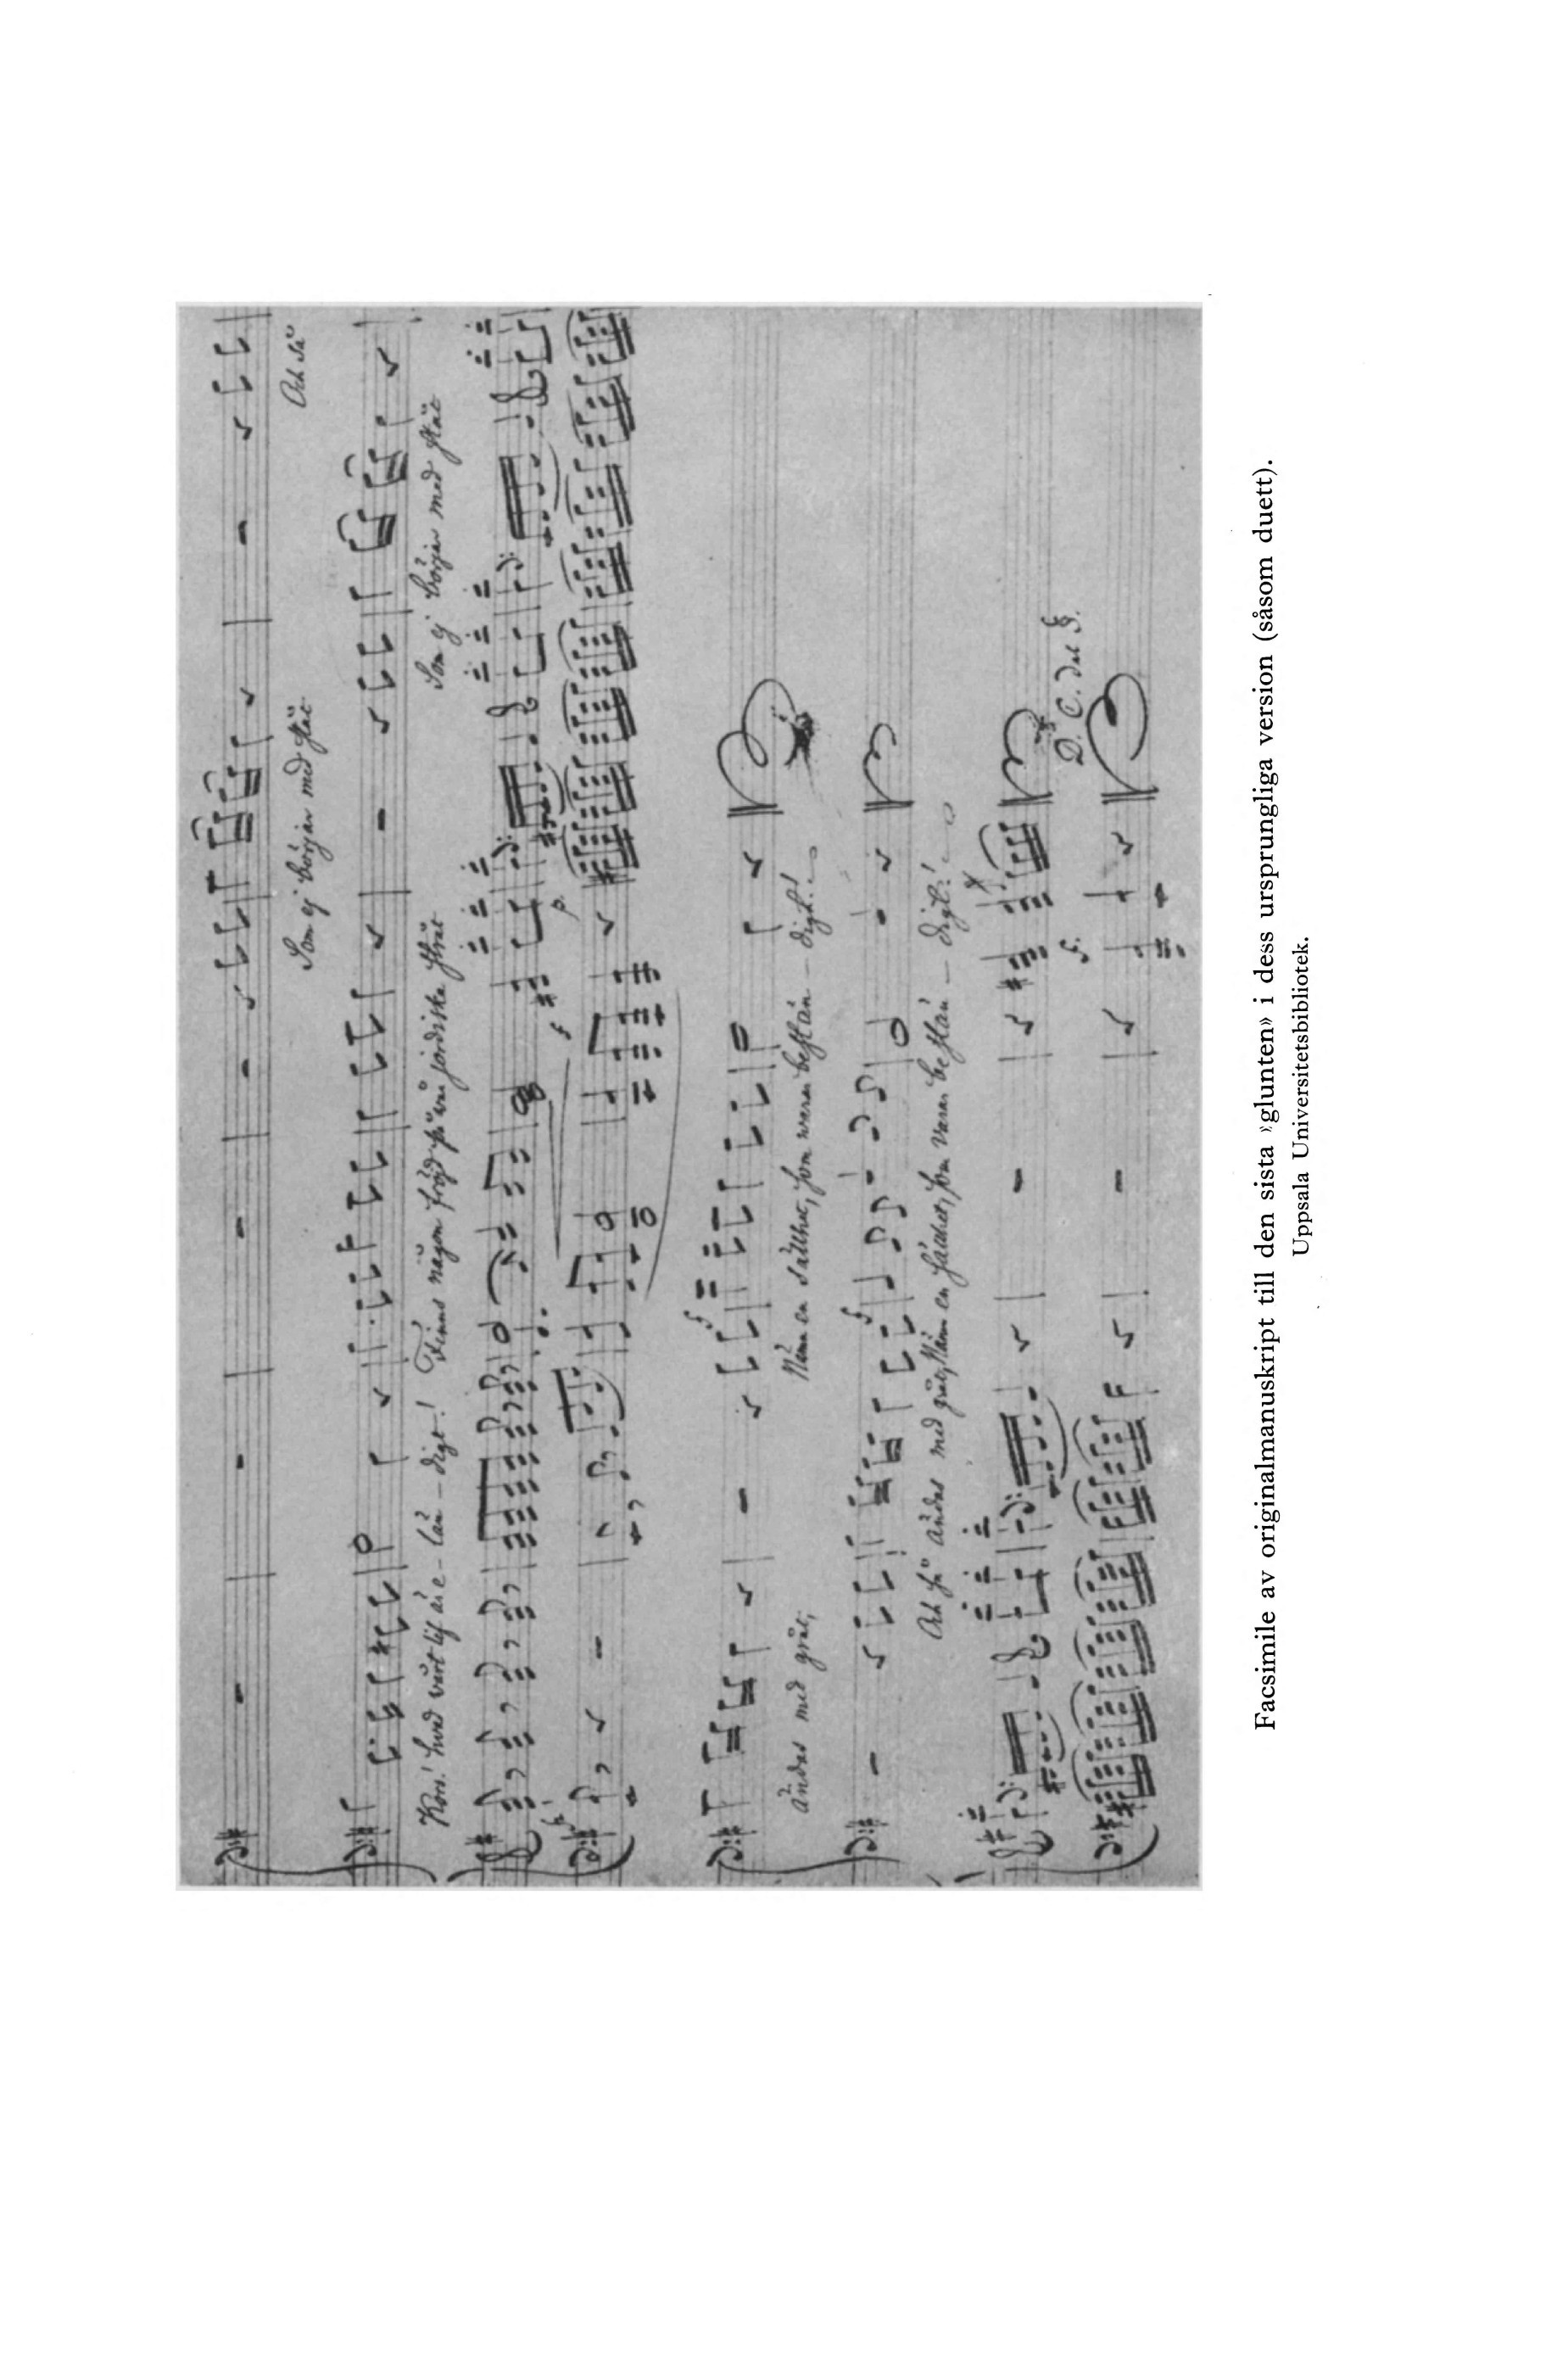 Som ej börjar med ståt
Och så
Kors! hwad vårt lif är e- län - digt! Finns någon fröjd på vår jordiska stråt
Som ej börjar med ståt
f
p.
ändas med gråt,
Nämn en sällhet, som waran bestän - digt!
Och så ändas med gråt, Nämn en sällhet, som varar bestän - digt!
f.
D. C. dal S.
Facsimile av originalmanuskript till den sista »glunten» i dess ursprungliga version (såsom duett).
Uppsala Universitetsbibliotek.